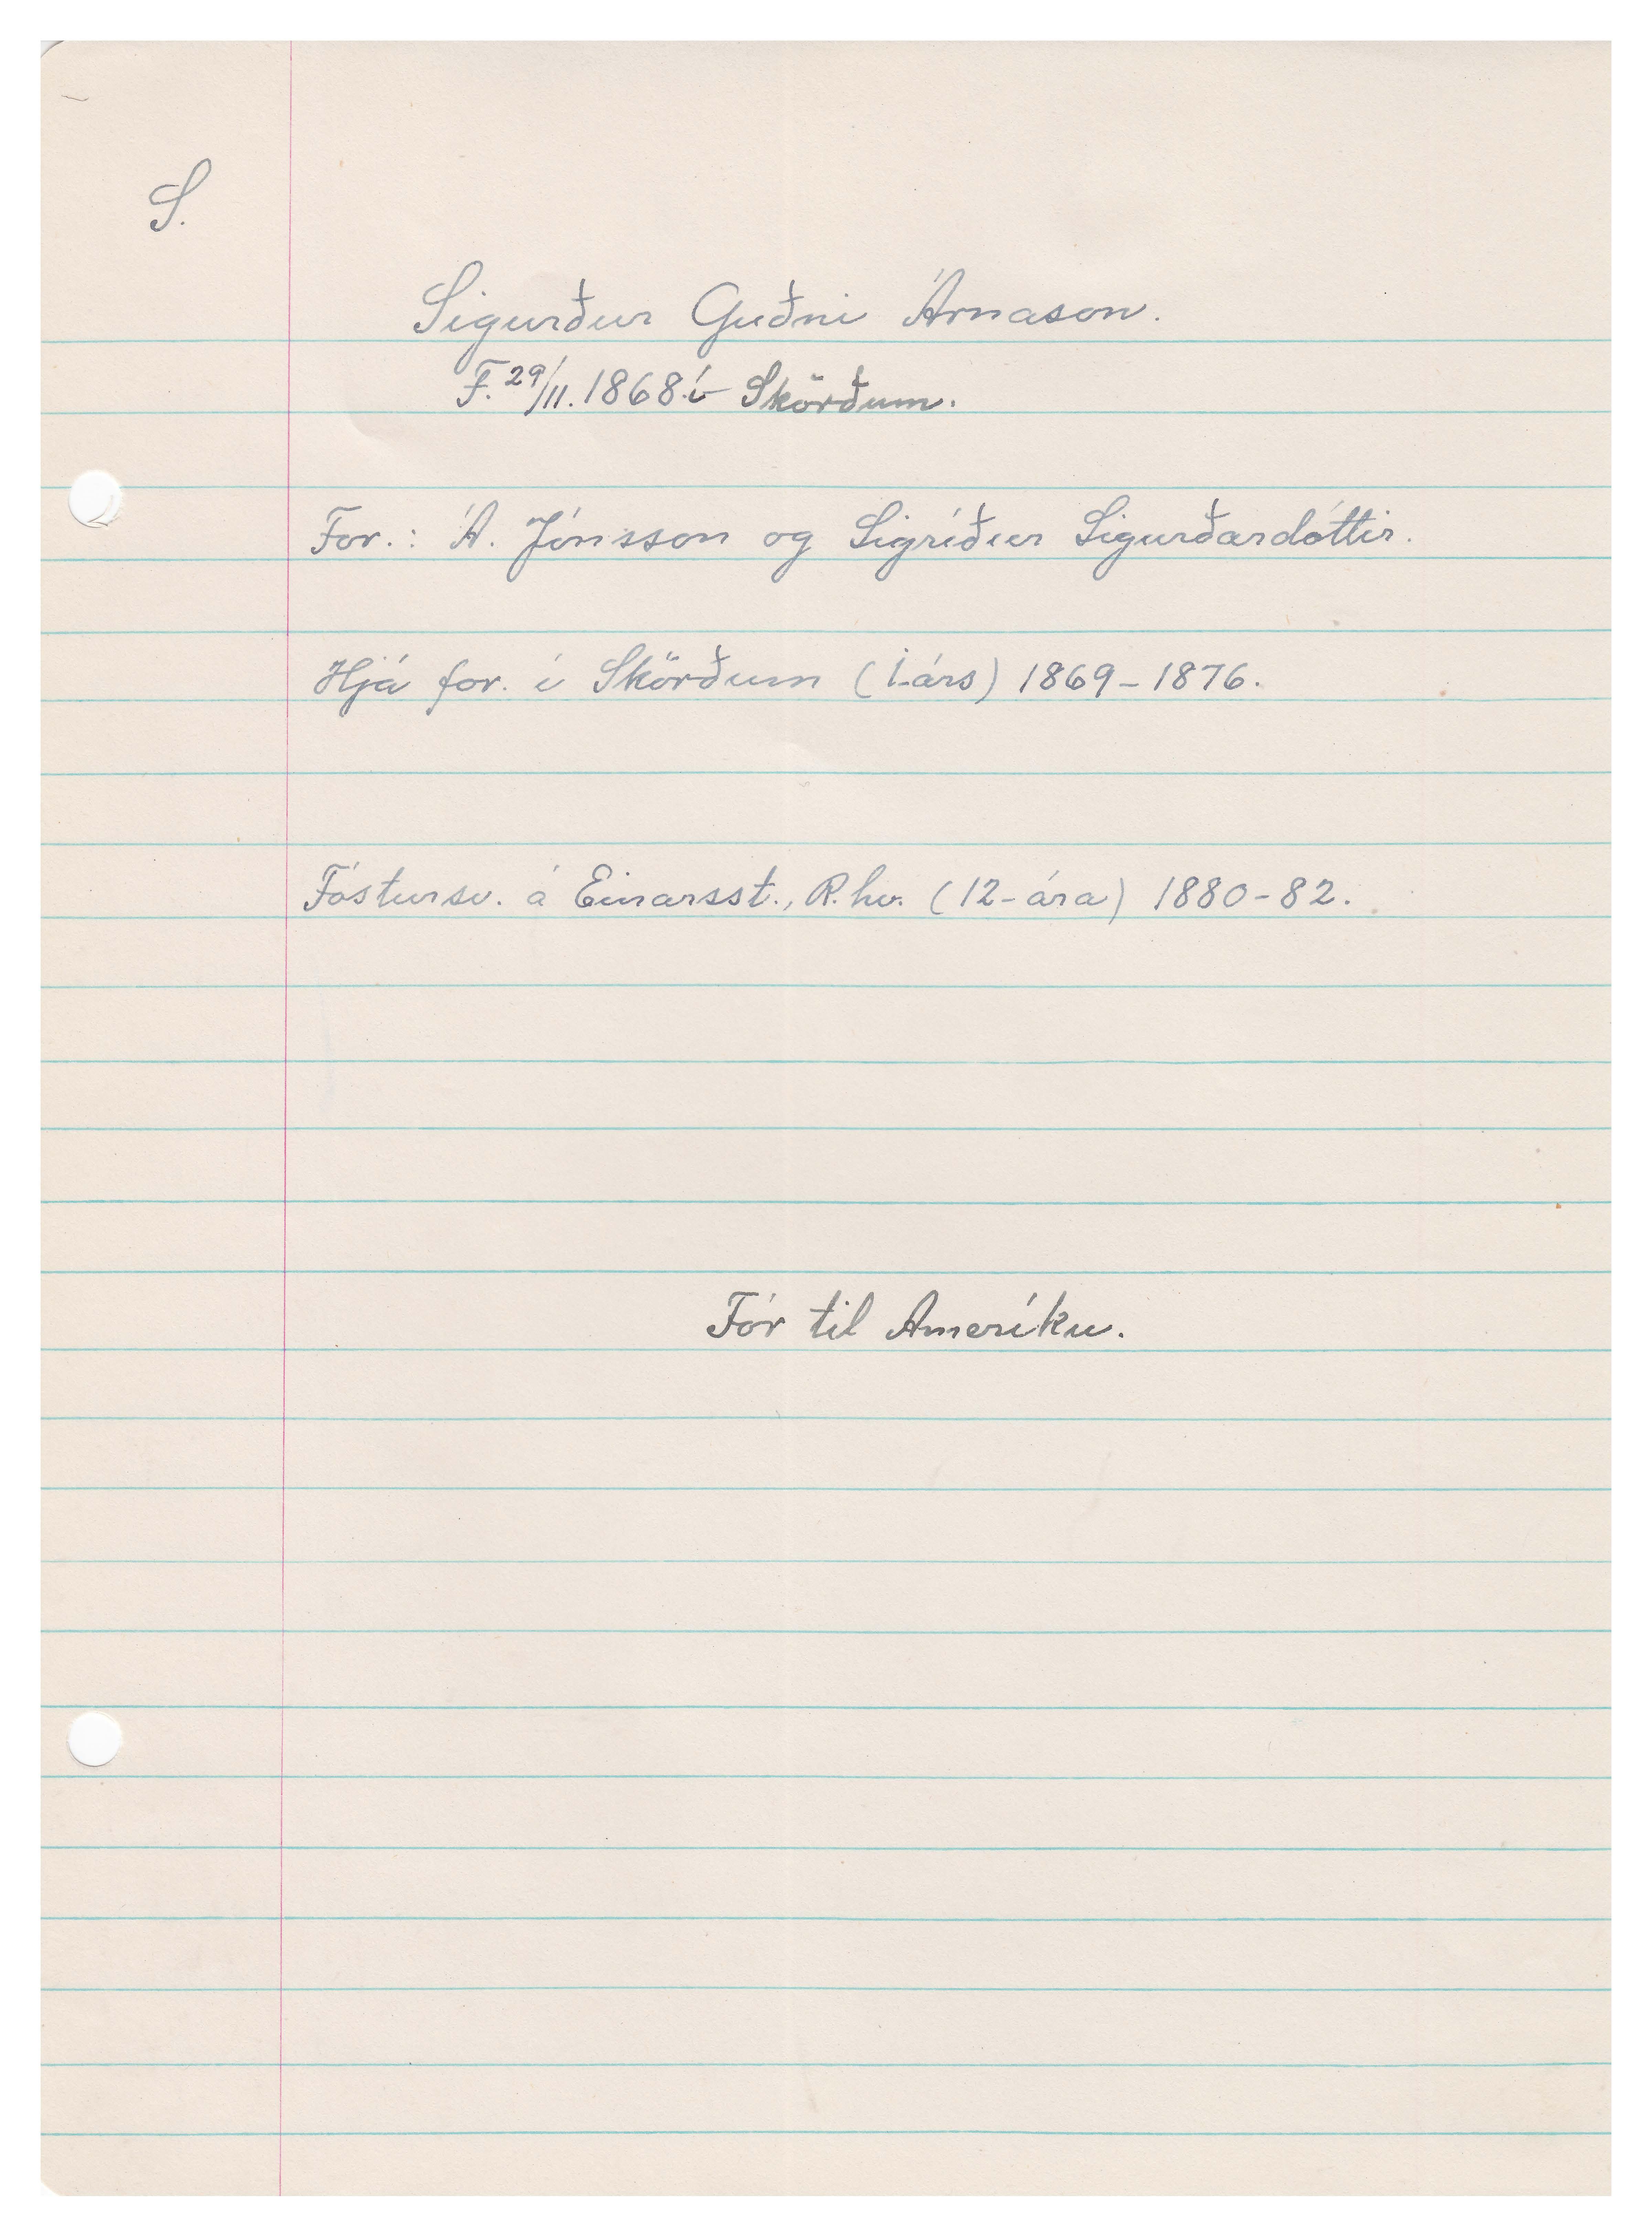 S.
Sigurður Guðni Árnason.
F. 29/11. 1868. í Skörðum.
For.: Á. Jónsson og Sigríður Sigurðardóttir.
Hjá for. í Skörðum (1-árs) 1869-1876.
Fóstursv. á Einarsst., R.hv. (12-ára) 1880-82.
Fór til Ameríku.